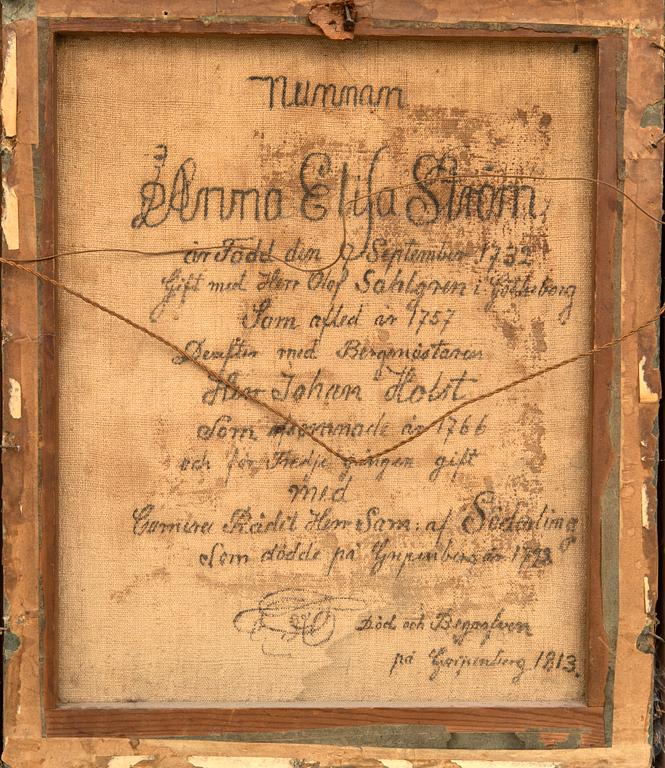 Numman
Anna Elisa Ström
är Född den 9 September 1732
Gift med Herr Olof Sahlgren i Götheborg
Som afled år 1757
Derefter med Bergmästaren
Herr Johan Holst
Som år 1766
och för Tredje gången gift
med
Camerer Rådet Herr Sam: af Söderling
Som dödde på Gripenberg år 1793
Död och Begrafven
på Gripenberg 1813.